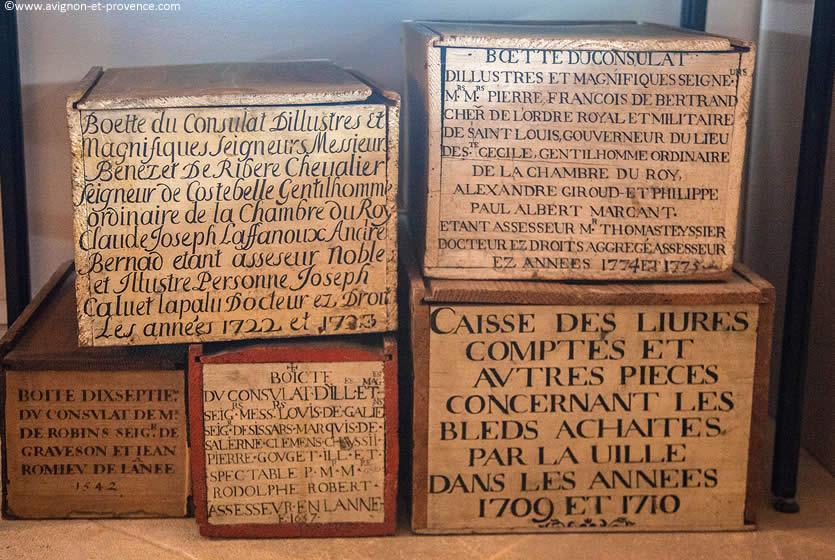 ©www.avignon-et-provence.com
Boette du Consulat Dillustres Et
Magnifiques Seigneurs Messieur
Benezet De Ribere Chevalier
Seigneur de Costebelle Gentilhomme
ordinaire de la Chambre du Roy
Claude Joseph Laffanoux André
Bernad etant asseseur Noble
et Illustre Personne Joseph
Caluet lapalu Docteur ez Droit
Les années 1722 et 1723
BŒTTE DU CONSULAT
DILLUSTRES ET MAGNIFIQUES SEIGNEURS
MRS MRS PIERRE, FRANCOIS DE BERTRAND
CHER DE L'ORDRE ROYAL ET MILITAIRE
DE SAINT LOUIS, GOUVERNEUR DU LIEU
DE STE CECILE, GENTILHOMME ORDINAIRE
DE LA CHAMBRE DU ROY,
ALEXANDRE GIROUD-ET PHILIPPE
PAUL ALBERT MARCANT.
ETANT ASSESSEUR MR THOMAS TEYSSIER
DOCTEUR EZ DROITS AGGREGÉ ASSESSEUR
EZ ANNEES 1774 ET 1775
BOITE DIXSEPTIE.
DV CONSVLAT DE MR.
DE ROBINS SEIGR. DE
GRAVESON ET IEAN
ROMIEV DE LÂNEE
1542
BOICTE
DV CONSVLAT DILLES ET MAG
SEIG MESSRS LOVIS DE GALIE
SEIG DESISSARS MARQVIS DE
SALERNE CLEMENS
PIERRE GOVGET ILL. ET
SPECTABLE P. M. M
RODOLPHE ROBERT
ASSESSEVR EN LANNE
E 1657
CAISSE DES LIURES
COMPTES ET
AVTRES PIECES
CONCERNANT LES
BLEDS ACHAITES
PAR LA UILLE
DANS LES ANNEES
1709 ET 1710